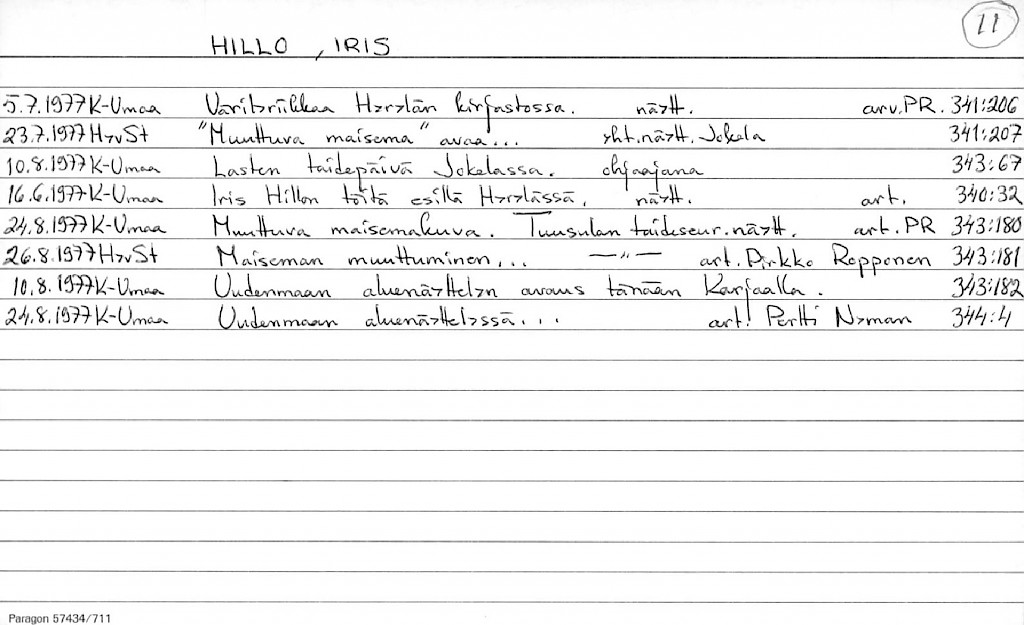 11
HILLO, IRIS
5.7.1977 K-Umaa Värikyrikkaa Hyrylän kirjastossa. näytt. arv.PR. 341:206
23.7.1977 HyvSt "Muuttuva maisema" avaa... yht.näytt. Jokela 341:207
10.8.1977 K-Umaa Lasten taidepäivä Jokelassa. ohjaajana 343:67
16.6.1977 K-Umaa Iris Hillon töitä esillä Hyrylässä, näytt. art. 340:32
24.8.1977 K-Umaa Muuttuva maisemakuva. Tuusulan taideseur.näytt. art. PR 343:180
26.8.1977 HyvSt Maiseman muuttuminen... —"— art. Pirkko Repponen 343:181
10.8.1977 K-Umaa Uudenmaan aluenäyttelyn avaus tänään Karjaalla. 343:182
24.8.1977 K-Umaa Uudenmaan aluenäyttelyssä... art. Pertti Nyman 344:4
Paragon 57434/711